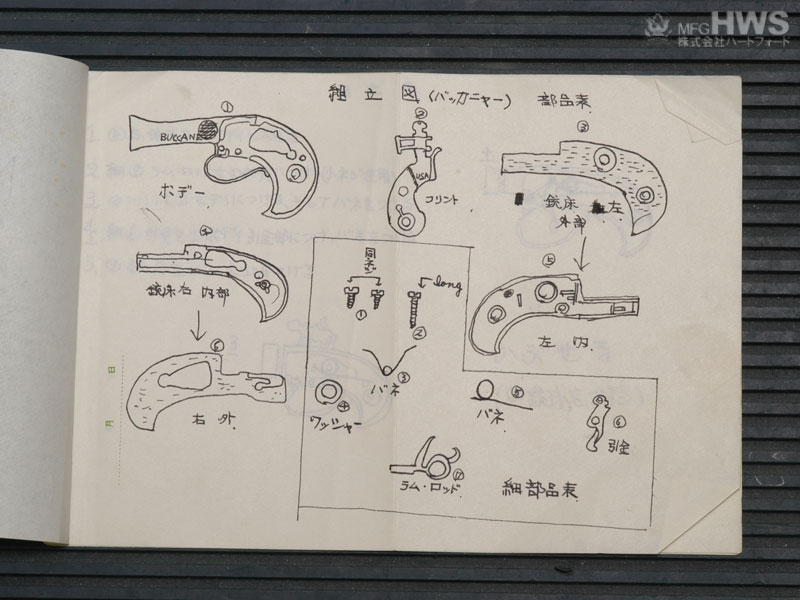 MFG HWS
株式会社ハートフォード
組立図(バッカニャー) 部品表
①
BUCCANE
ボデー
②
USA
フリント
③
銃床 左
外部
④
銃床右 内部
⑤
左 内
⑥
右 外
同ネジ
①
long
②
バネ
③
ワッシャー
④
バネ
⑤
⑥
引金
⑦
ラム・ロッド
細部品表
日
月